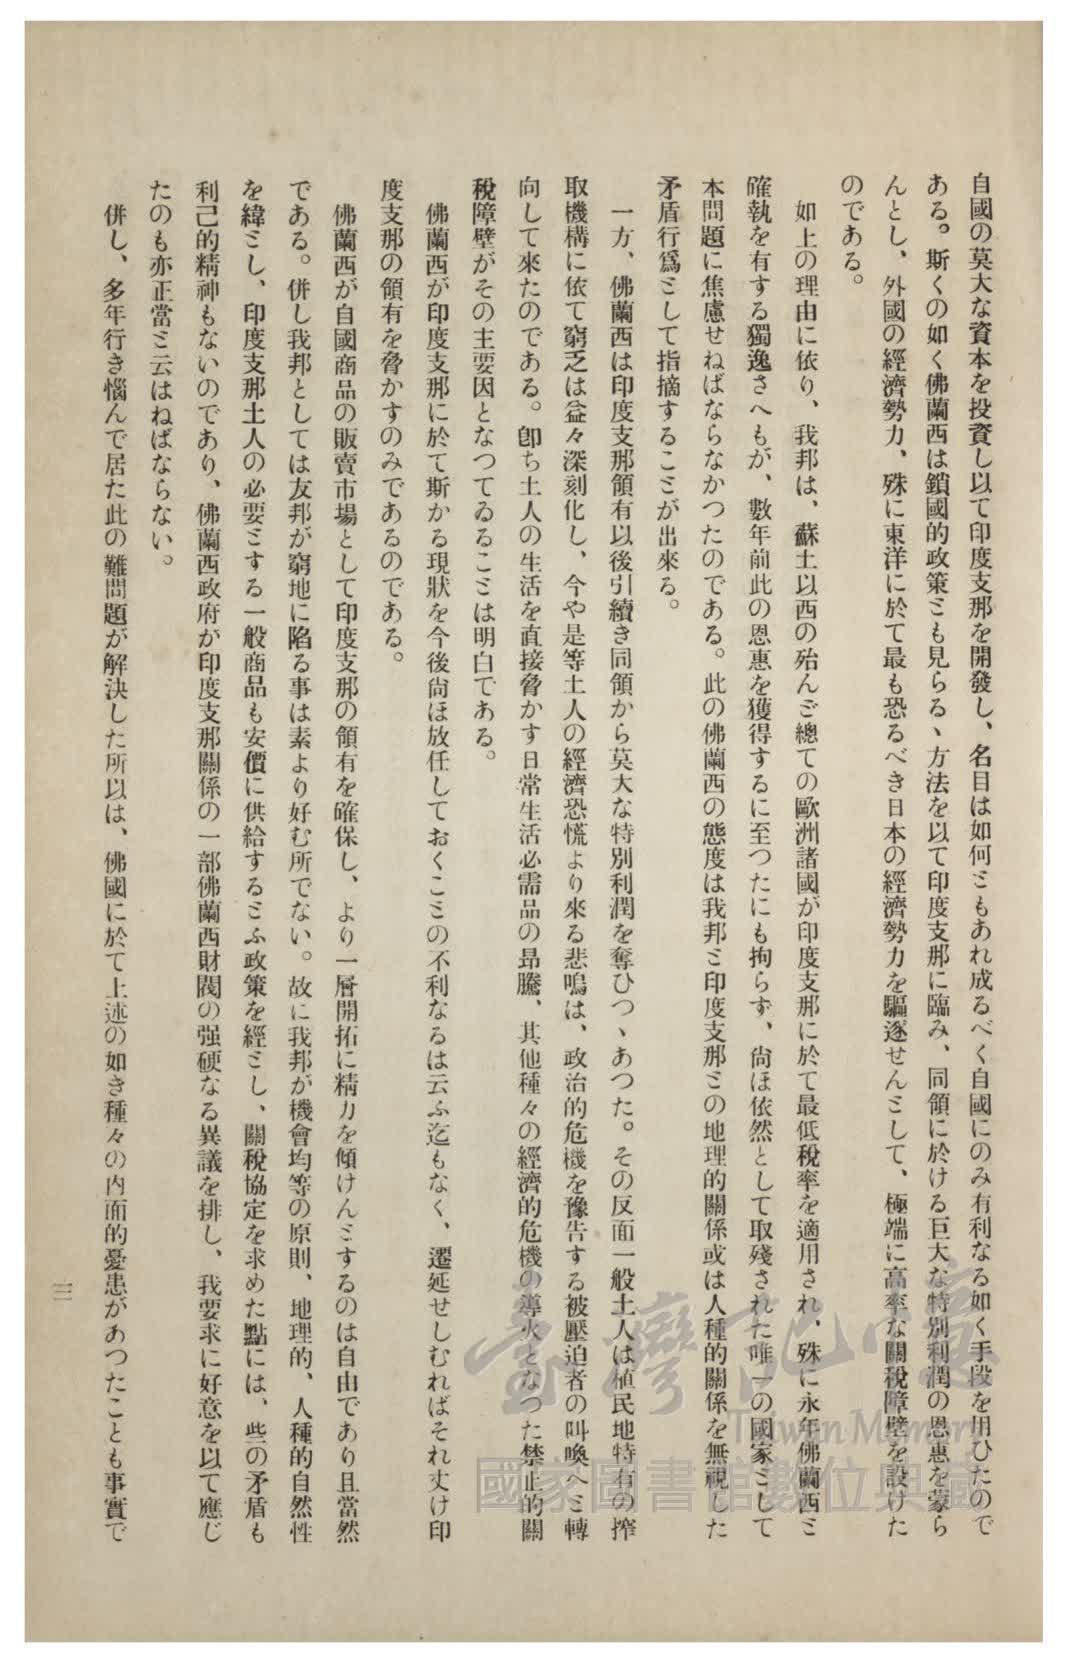 自國の莫大な資本を投資し以て印度支那を開發し、名目は如何ともあれ成るべく自國にのみ有利なる如く手段を用ひたので
ある。斯くの如く佛蘭西は鎖國的政策とも見らるゝ方法を以て印度支那に臨み、同領に於ける巨大な特別利潤の恩惠を蒙ら
んとし、外國の經濟勢力、殊に東洋に於て最も恐るべき日本の經濟勢力を驅逐せんとして、極端に高率な關稅障壁を設けた
のである。
如上の理由に依り、我邦は、蘇土以西の殆んど總ての歐洲諸國が印度支那に於て最低稅率を適用され、殊に永年佛蘭西と
確執を有する獨逸さへもが、數年前此の恩惠を獲得するに至つたにも拘らず、尙ほ依然として取殘された唯一の國家として
本問題に焦慮せねばならなかつたのである。此の佛蘭西の態度は我邦と印度支那との地理的關係或は人種的關係を無視した
矛盾行爲として指摘することが出來る。
一方、佛蘭西は印度支那領有以後引續き同領から莫大な特別利潤を奪ひつゝあつた。その反面一般土人は植民地特有の搾
取機構に依て窮乏は益々深刻化し、今や是等土人の經濟恐慌より來る悲鳴は、政治的危機を豫告する被壓迫者の叫喚へと轉
向して來たのである。卽ち土人の生活を直接脅かす日常生活必需品の昂騰、其他種々の經濟的危機の導火となつた禁止的關
稅障壁がその主要因となつてゐることは明白である。
佛蘭西が印度支那に於て斯かる現狀を今後尙ほ放任しておくことの不利なるは云ふ迄もなく、遷延せしむればそれ丈け印
度支那の領有を脅かすのみであるのである。
佛蘭西が自國商品の販賣市場として印度支那の領有を確保し、より一層開拓に精力を傾けんとするのは自由であり且當然
である。併し我邦としては友邦が窮地に陷る事は素より好む所でない。故に我邦が機會均等の原則、地理的、人種的自然性
を緯とし、印度支那土人の必要とする一般商品も安價に供給するとふ政策を經とし、關稅協定を求めた點には、些の矛盾も
利己的精神もないのであり、佛蘭西政府が印度支那關係の一部佛蘭西財閥の强硬なる異議を排し、我要求に好意を以て應じ
たのも亦正當と云はねばならない。
併し、多年行き惱んで居た此の難問題が解決した所以は、佛國に於て上述の如き種々の內面的憂患があつたことも事實で
三
臺灣記憶
Taiwan Memory
國家圖書館數位典藏